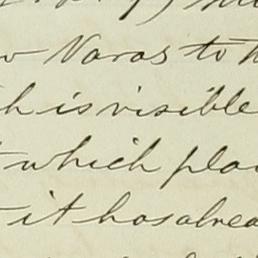 Naras to
is visible
which pla
it has alrea